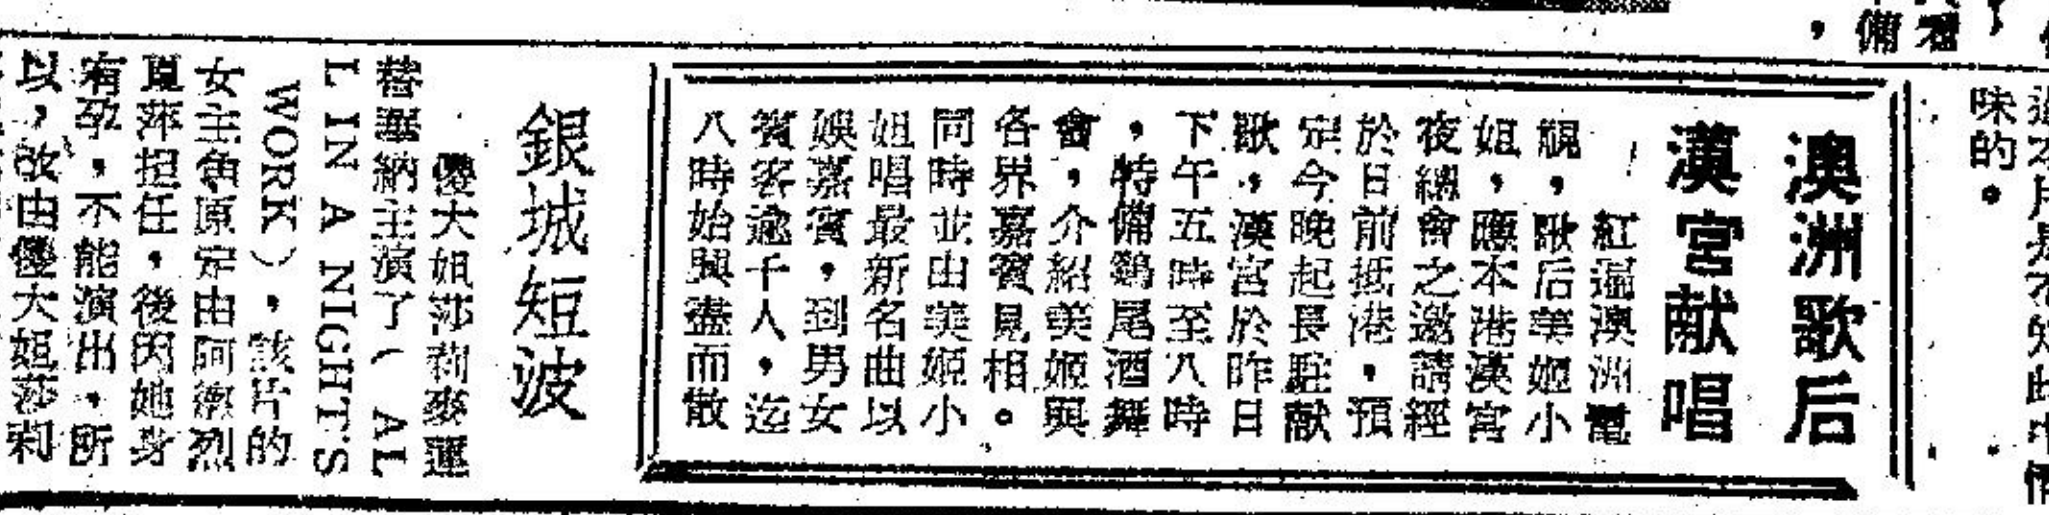 味的。
澳洲歌后
漢宮献唱
紅遍澳洲電
視，歌后美姬小
姐，應本港漢宮
夜總會之邀請經
於日前抵港，預
定今晚起長駐献
歌，漢宮於昨日
下午五時至八時
，特備鷄尾酒舞
會，介紹美姬與
各界嘉賓見相。
同時並由美姬小
姐唱最新名曲以
娛嘉賓，到男女
賓客逾千人，迄
八時始興盡而散
銀城短波
優大姐莎莉麥運
替塞納主演了（AL
L IN A NIGHT'S
WORK），該片的
女主角原定由阿烈
萍担任，後因她身
有孕，不能演出，所
以，故由優大姐莎莉